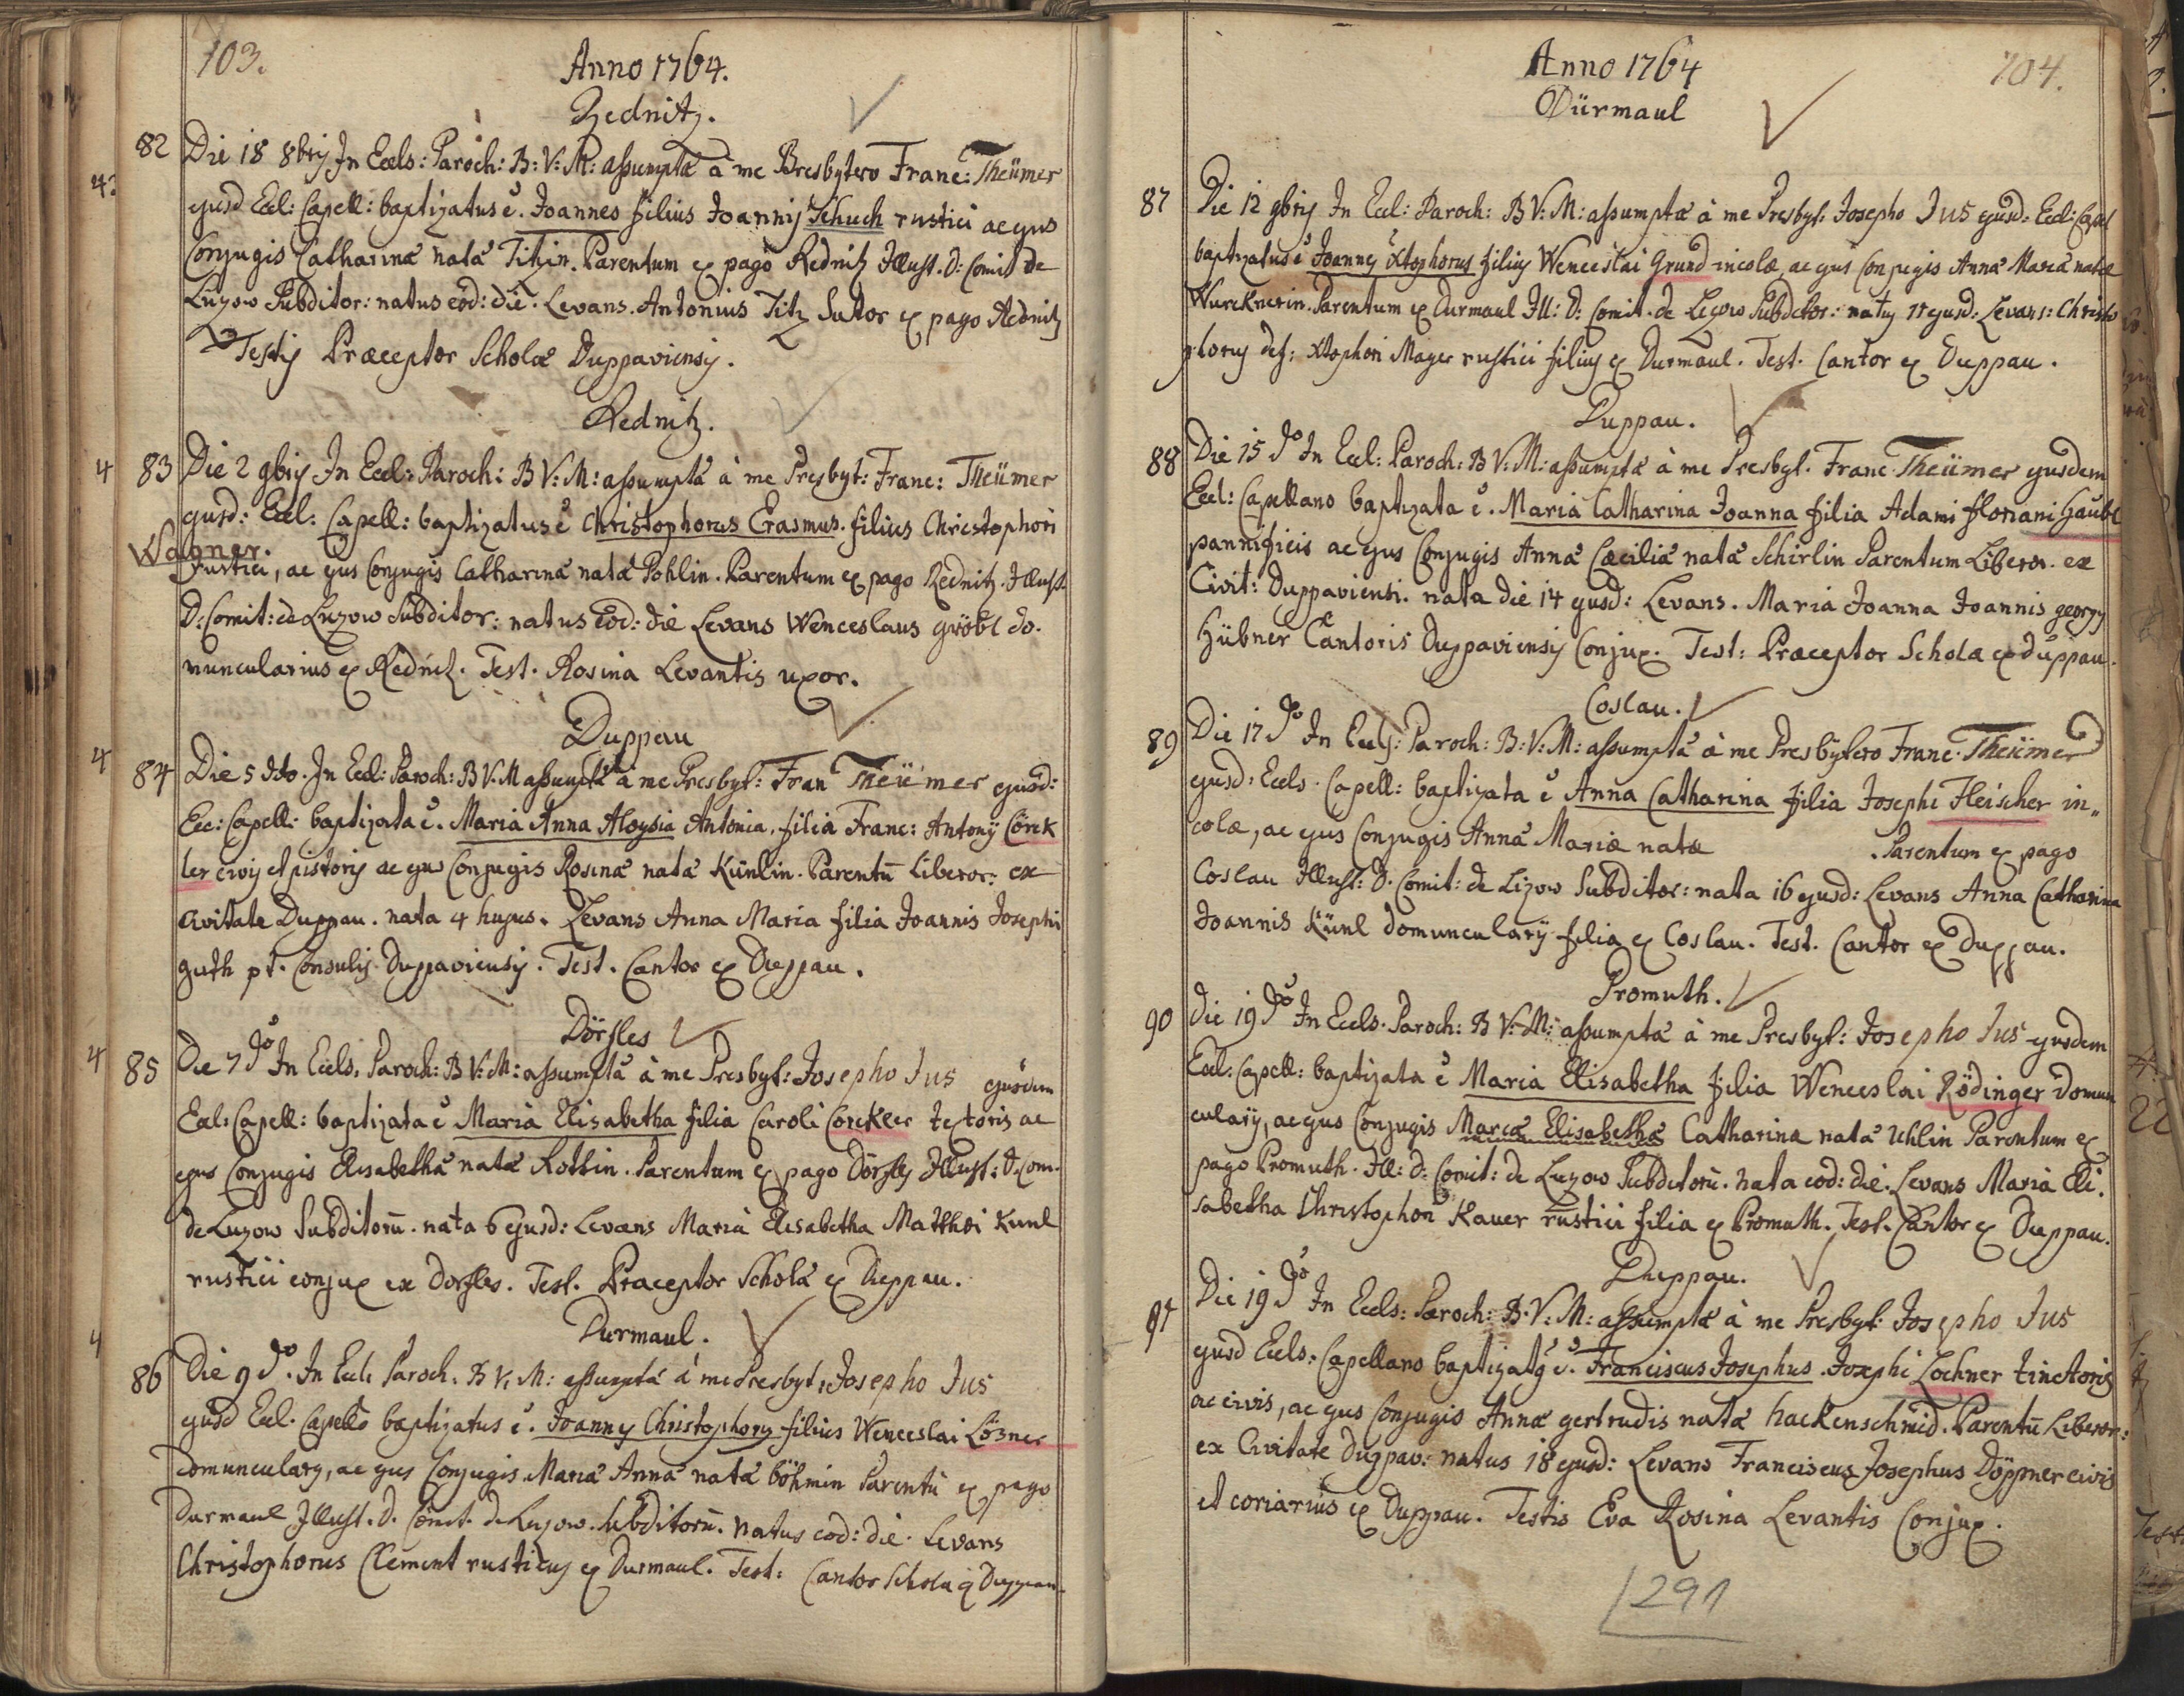 103.
Anno 1764.
Rednitz.
82 Die 18 8bris In Eccls: Paroch: B: V: M: assumptæ à me Presbytero Franc: Theümer
4.
ejusd Eccl: Capell: baptizatus ē. Joannes filius Joannis Schuch rustici ac ejus
Conjugis Catharinæ natæ Titzin. Parentum ex pago Rednitz Illust. D: Comit de
Luzow Subditor: natus eod: die. Levans. Antonius Titz Sutor ex pago Rednitz
Testis Præceptor Scholæ Duppaviensis.
Rednitz.
4 83 Die 2 9bris In Eccl: Paroch: B V: M: assumptæ à me Presbyt: Franc: Theümer
ejusd: Eccl: Capell: baptizatus ē Christophorus Erasmus. filius Christophori
Wagner.
rustici, ac ejus Conjugis Catharinæ natæ Pohlin. Parentum ex pago Rednitz. Illust.
D: Comit: de Luzow Subditor: natus eod: die Levans Wenceslaus gröbl do.
muncularius ex Rednitz. Test. Rosina Levantis uxor.
Duppau
4 84 Die 5 dto. In Eccl: Paroch: B V. M assumptæ à me Presbyt: Fran Theümer ejusd:
Ecc: Capell: baptizata ē. Maria Anna Aloysia Antonia, filia Franc: Antonÿ Cörck
ler civis et pistoris ac ejus Conjugis Rosinæ natæ Künlin. Parentū Liberor: ex
Civitate Duppau. nata 4 hujus. Levans Anna Maria filia Joannis Josephi
guth pt. Consulis Duppaviensis. Test. Cantor ex Duppau.
Dörfles
4 85 Die 7 do In Eccls. Paroch: B V: M: assumptæ à me Presbyt: Josepho Jus ejusdem
Eccl: Capell: baptizata ē Maria Elisabetha filia Caroli Corckler textoris ac
ejus Conjugis Elisabethæ natæ Rottin. Parentum ex pago Dörfles Illust: D. Com.
de Luzow Subditorū. nata 6 Ejusd: Levans Maria Elisabetha Matthæi Kunl
rustici conjux ex Dorfles. Test. Præceptor Scholæ ex Duppau.
Durmaul.
4
86 Die 9 do. In Eccl: Paroch. B V. M: assumptæ à me Presbyt: Josepho Jus
ejusd Eccl. Capello baptizatus ē. Joannes Christophorus filius Wenceslai Lözner
domuncularÿ, ac ejus Conjugis Mariæ Annæ natæ böhmin Parentū ex pago
Durmaul Illust. D. Comit. de Luzow. Subditorū. natus eod: die. Levans
Christophorus Clement rusticus ex Durmaul. Test: Cantor Scholæ ex Duppau.
Anno 1764
104.
Dürmaul
87 Die 12 9bris In Eccl: Paroch: B V: M: assumptæ à me Presbyt: Josepho Jus ejusd: Eccl: Capel
baptizatus ē Joannes Xtophorus filius Wenceslai Grund incolæ, ac ejus Conjugis Annæ Mariæ natæ
Wurcknerin. Parentum ex Durmaul Ill: D: Comit. de Lizow Subditor: natus 11 ejusd: Levans: Christo
phorus def: Xtophori Mayer rustici filius ex Durmaul. Test. Cantor ex Duppau.
Duppau.
88 Die 15 do In Eccl: Paroch: B V: M: assumptæ à me Presbyt. Franc Theümer ejusdem
Eccl: Capellano baptizata ē. Maria Catharina Joanna filia Adami floriani Gaubl
pannificis ac ejus Conjugis Annæ Cæciliæ natæ Schirlin Parentum Liberor. ex
Civit: Duppaviensi. nata die 14 ejusd: Levans. Maria Joanna Joannis georgÿ
Hübner Cantoris Duppaviensis Conjux. Test: Præceptor Scholæ ex duppau.
Coslau.
89 Die 17 do In Eccls: Paroch: B: V: M: assumptæ à me Presbytero Franc. Theümer
ejusd: Eccls. Capell: baptizata ē Anna Catharina filia Josephi Fleischer in„
colæ, ac ejus Conjugis Annæ Mariæ natæ . Parentum ex pago
Coslau Illust: D. Comit: de Lizow Subditor: nata 16 ejusd: Levans Anna Catharina
Joannis Künl domuncularÿ filia ex Coslau. Test. Cantor ex Duppau.
Promuth.
90 die 19 do In Eccls. Paroch: B V: M: assumptæ à me Presbyt: Josepho Jus ejusdem
Eccl: Capell: baptizata ē Maria Elisabetha filia Wenceslai Rödinger domun
cularÿ, ac ejus Conjugis Mariæ Elisabethæ Catharinæ natæ Uhlin Parentum ex
pago Promuth. Ill: D: Comit: de Luzow Subditorū. nata eod: die. Levans Maria Eli.
sabetha Christophori Kauer rustici filia ex Promuth. Test. Cantor ex Duppau.
Duppau.
91 Die 19 do In Eccls: Paroch: B: V: M: assumptæ à me Presbyt: Josepho Jus
ejusd Eccls: Capellano baptizatg ē. Franciscus Josephus. Josephi Lochner tinctoris
ac civis, ac ejus Conjugis Annæ gertrudis natæ hackenschmid. Parentū Liberor:
ex Civitate duppav: natus 18 ejusd: Levans Franciscus Josephus Döppner civis
et coriarius ex Duppau. Testis Eva Rosina Levantis Conjux.
291
22